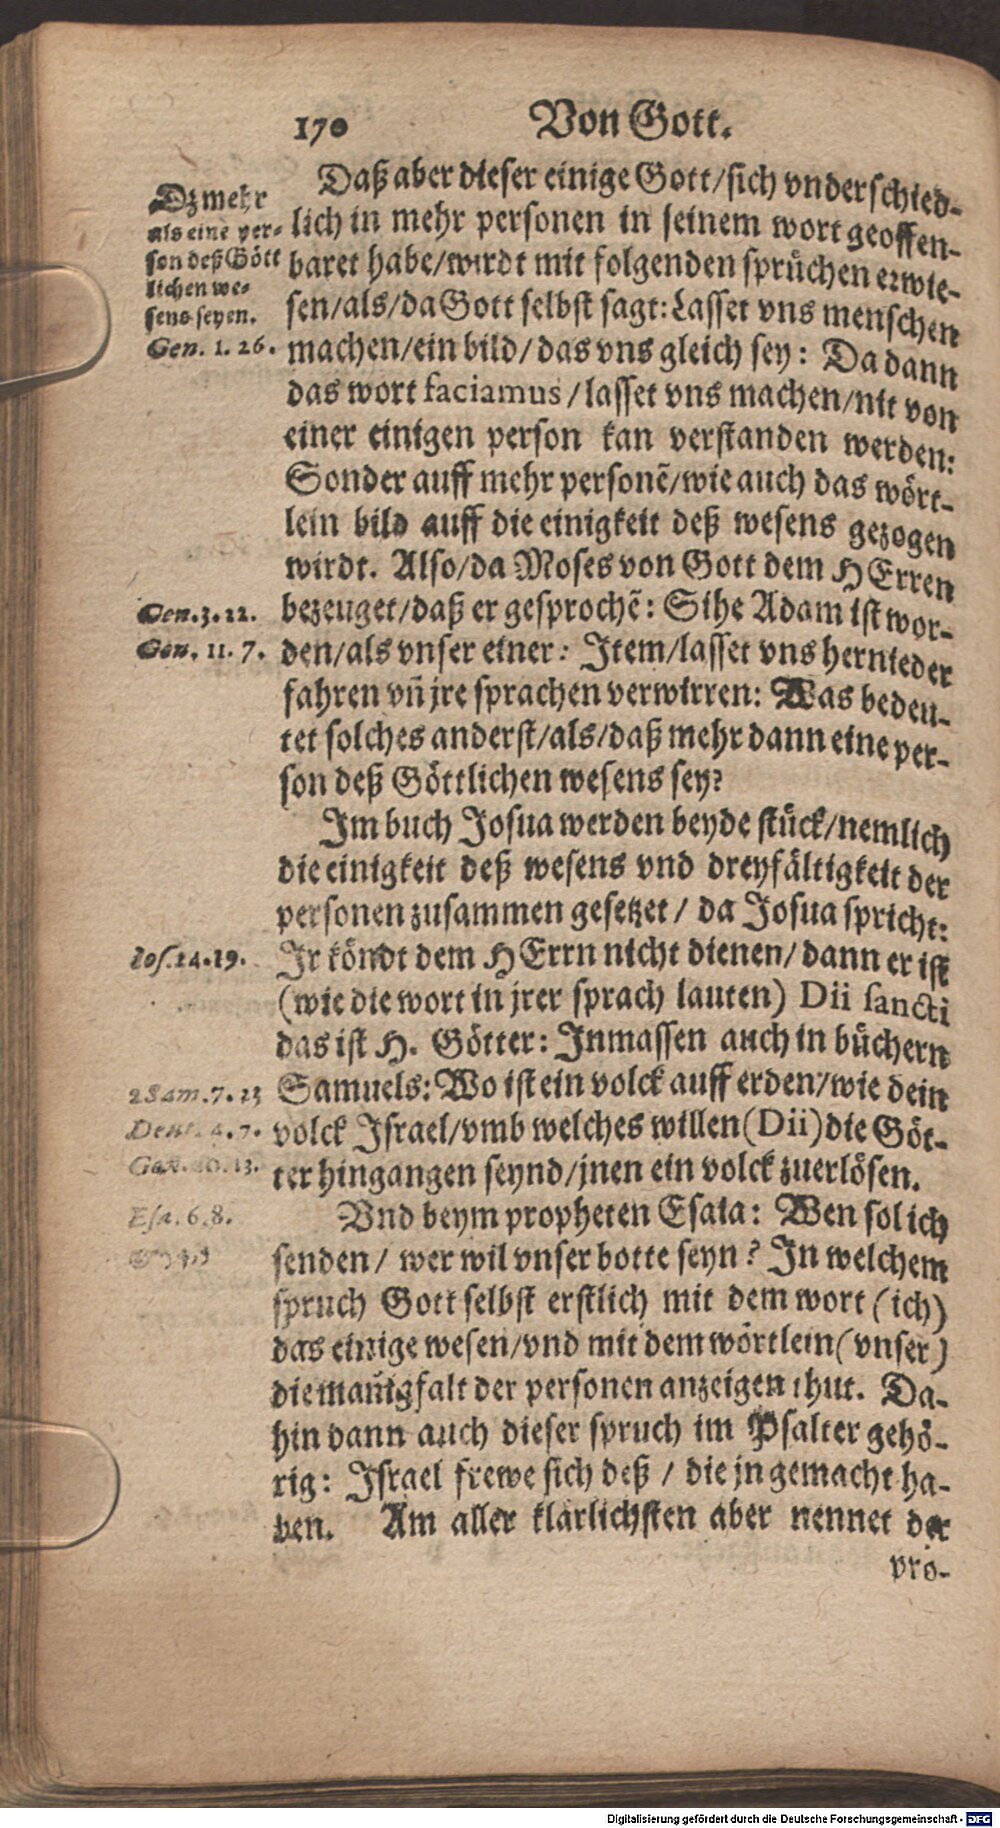 170 Von Gott.
Dz mehr
als eine per-
son deß Gött
lichen we-
sens seyen.
Gen. 1. 26.
Daß aber dieser einige Gott/sich vnderschied-
lich in mehr personen in seinem wort geoffen-
baret habe/wirdt mit folgenden sprüchen erwie-
sen/als/da Gott selbst sagt: Lasset vns menschen
machen/ein bild/das vns gleich sey: Da dann
das wort faciamus/lasset vns machen/nit von
einer einigen person kan verstanden werden:
Sonder auff mehr personẽ/wie auch das wört-
lein bild auff die einigkeit deß wesens gezogen
wirdt. Also/da Moses von Gott dem HErren
Gen. 3. 22.
bezeuget/daß er gesprochẽ: Sihe Adam ist wor-
Gen. 11. 7.
den/als vnser einer: Item/lasset vns hernieder
fahren vñ jre sprachen verwirren: Was bedeu-
tet solches anderst/als/daß mehr dann eine per-
son deß Göttlichen wesens sey?
Im buch Josua werden beyde stück/nemlich
die einigkeit deß wesens vnd dreyfältigkeit der
personen zusammen gesetzet/ da Josua spricht:
Ios. 24. 19.
Ir köndt dem HErrn nicht dienen/dann er ist
(wie die wort in jrer sprach lauten) Dii sancti
das ist H. Götter: Inmassen auch in büchern
2 Sam. 7. 23
Samuels: Wo ist ein volck auff erden/wie dein
Deut. 4. 7.
volck Israel/vmb welches willen (Dii) die Göt-
Gen. 20. 13.
ter hingangen seynd/jnen ein volck zuerlösen.
Esa. 6. 8.
Vnd beym propheten Esaia: Wen sol ich
senden/ wer wil vnser botte seyn? In welchem
spruch Gott selbst erstlich mit dem wort (ich)
das einige wesen/vnd mit dem wörtlein (vnser)
die mañigfalt der personen anzeigen thut. Da-
hin dann auch dieser spruch im Psalter gehö-
rig: Israel frewe sich deß / die jn gemacht ha-
ben. Am aller klärlichsten aber nennet der
pro-
Digitalisierung gefördert durch die Deutsche Forschungsgemeinschaft - DFG